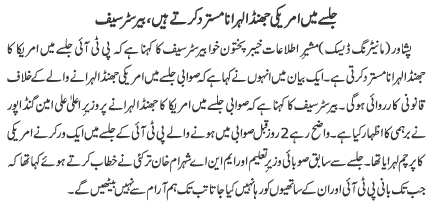 جلسے میں امریکی جھنڈا لہرانا مسترد کرتے ہیں، بیرسٹر سیف
پشاور (مانیٹرنگ ڈیسک) مشیر اطلاعات خیبر پختون خوا بیرسٹر سیف کا کہنا ہے کہ پی ٹی آئی جلسے میں امریکا کا
جھنڈا لہرانا مسترد کرتی ہے۔ ایک بیان میں انہوں نے کہا ہے کہ صوابی جلسے میں امریکی جھنڈا لہرانے والے کے خلاف
قانونی کارروائی ہوگی۔ بیرسٹر سیف کا کہنا ہے کہ صوابی جلسے میں امریکا کا جھنڈا لہرانے پر وزیر اعلیٰ علی امین گنڈاپور
نے برہمی کا اظہار کیا ہے۔ واضح رہے 2 روز قبل صوابی میں ہونے والے پی ٹی آئی کے جلسے میں ایک ورکر نے امریکا
کا پرچم لہرایا تھا۔ جلسے سے سابق صوبائی وزیر تعلیم اور ایم این اے شہرام خان ترکئی نے خطاب کرتے ہوئے کہا تھا کہ
جب تک بانی پی ٹی آئی اور ان کے ساتھیوں کو رہا نہیں کیا جاتا تب تک ہم آرام سے نہیں بیٹھیں گے۔